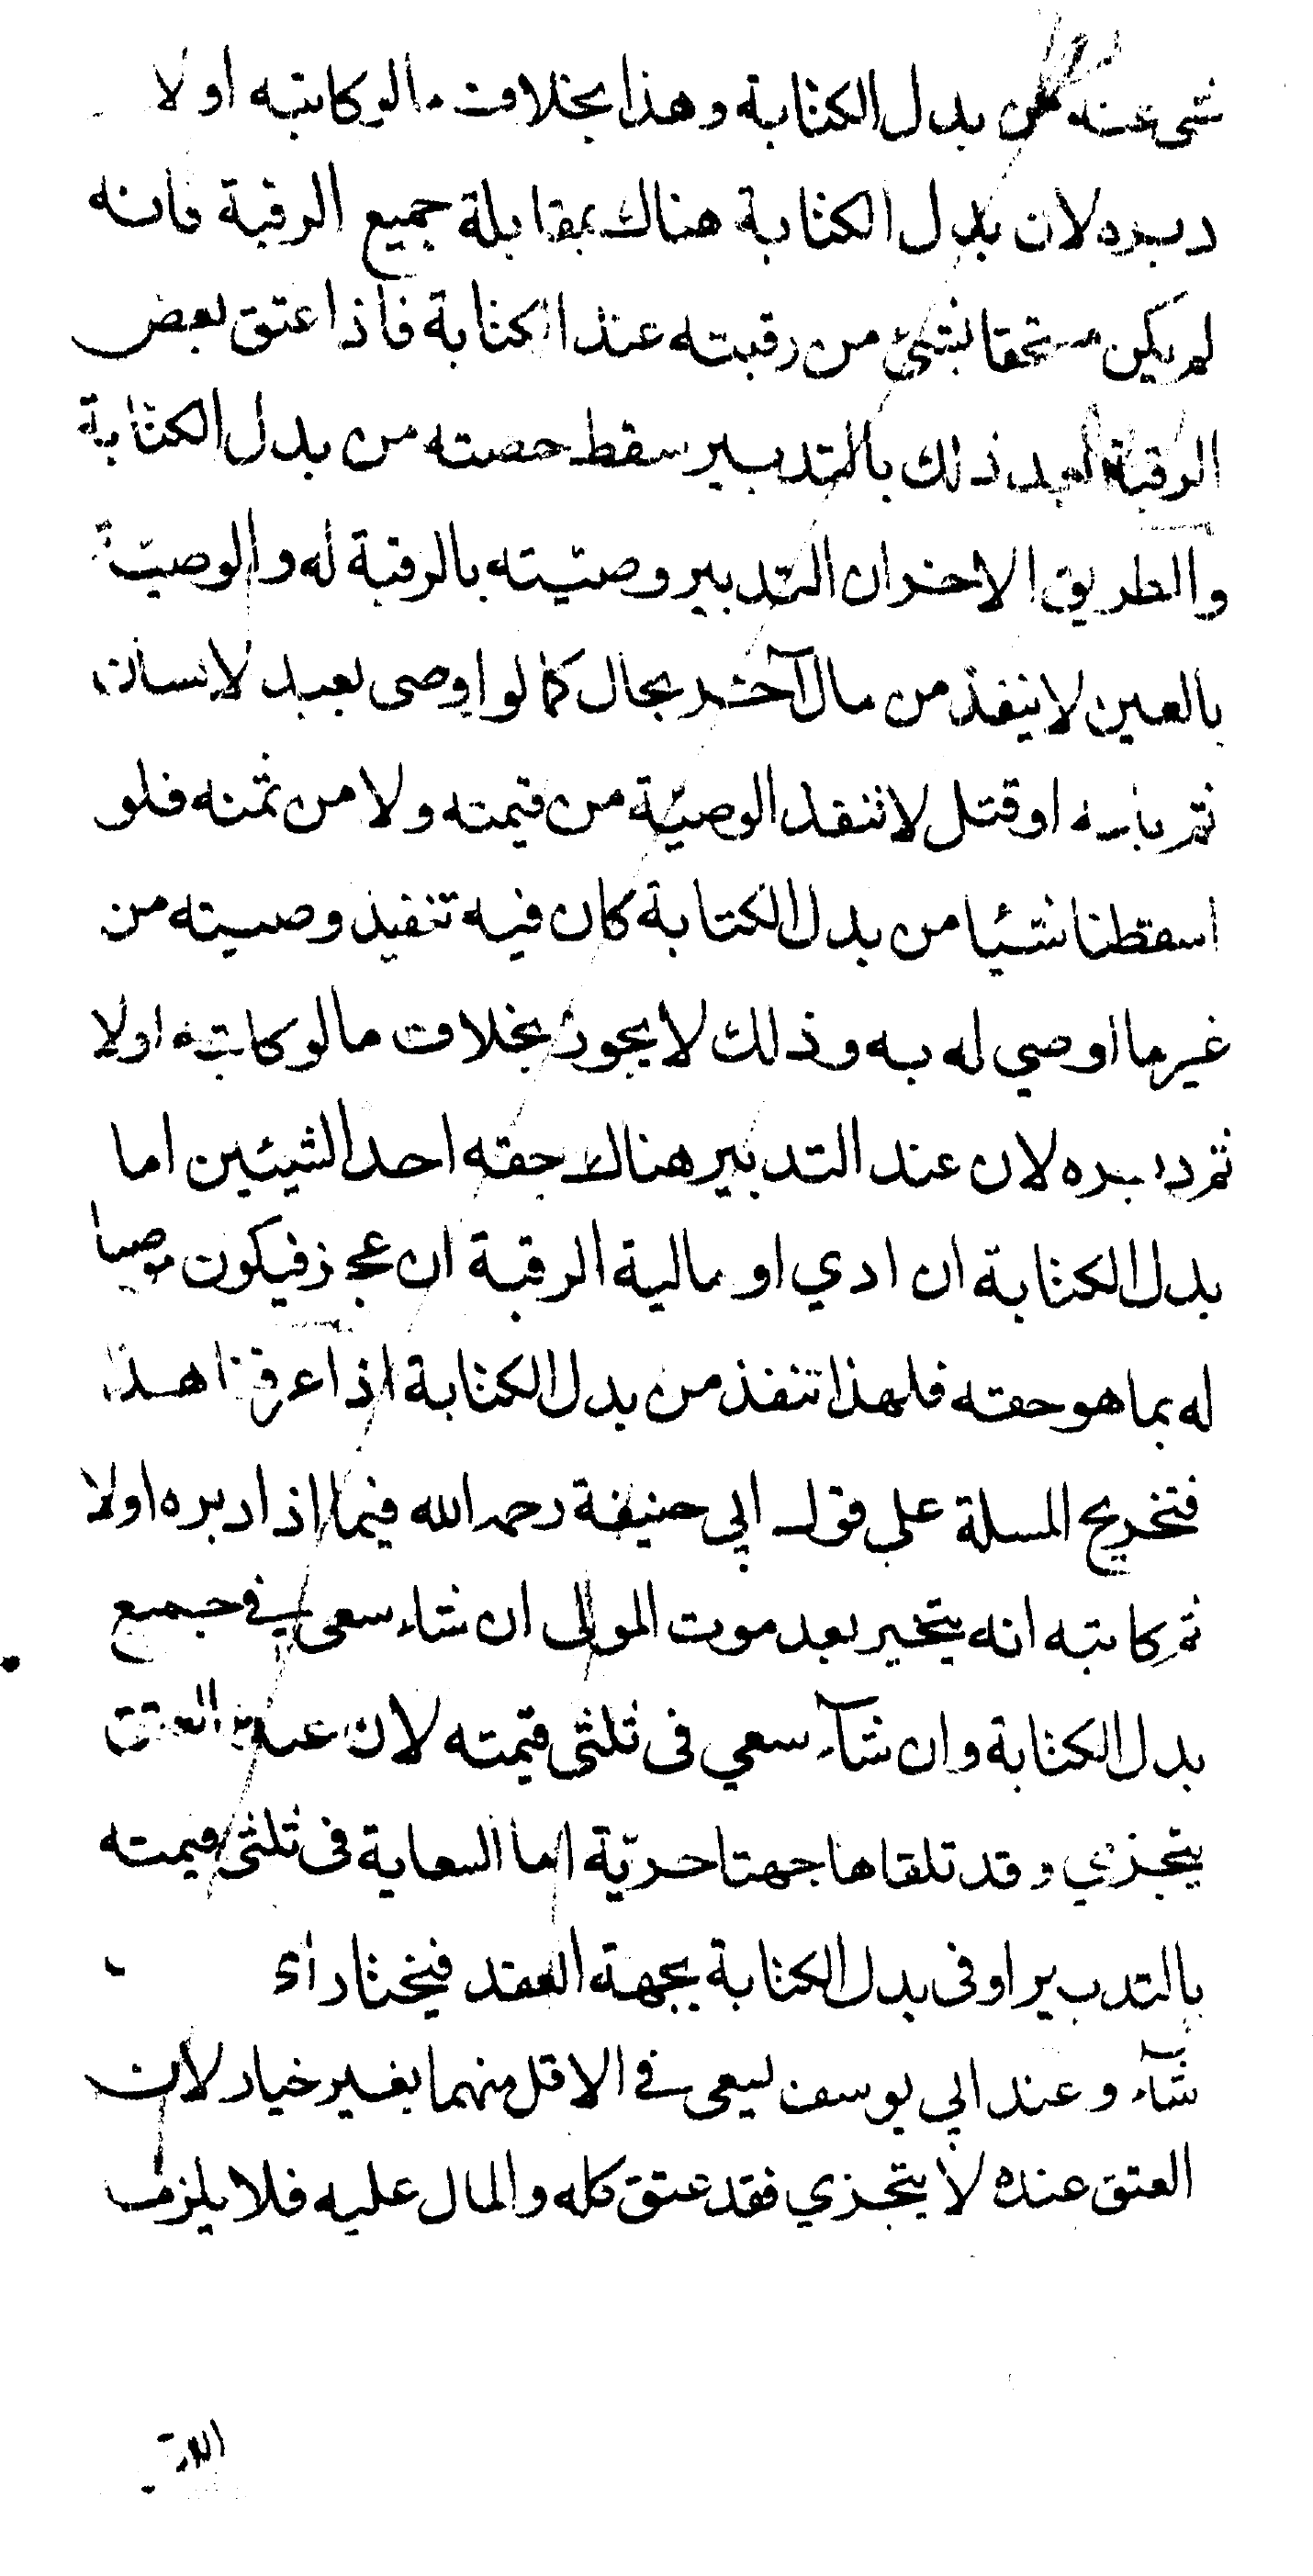 شي عنه من بدل الكتابة وهذا بخلاف مالو كاتبه او لا
دبره لان بدل الكتابة هناك بمقابلة جميع الرقبة فانه
لم يكن مستحقا بشئ من رقبته عند الكتابة فاذا عتق بعض
الرقبة بعد ذلك بالتدبير سقط حصته من بدل الكتابة
والطريق الاخر ان التدبير وصيّته بالرقبة له والوصيّة
بالعين لا ينفذ من مال آخر بحال كما لو اوصى بعبد لانسان
ثم باعه او قتل لا تنفذ الوصيّة من قيمته ولا من ثمنه فلو
اسقطنا شيئا من بدل الكتابة كان فيه تنفيذ وصيته من
غير ما اوصي له به وذلك لا يجوز بخلاف مالو كاتبه اولا
ثم دبره لان عند التدبير هناك حقه احد الشيئين اما
بدل الكتابة ان ادي او مالية الرقبة ان عجز فيكون موصيا
له بما هو حقه فلهذا تنفذ من بدل الكتابة اذا عرفنا هذا
فتخريج المسلة على قول ابي حنيفة رحمه الله فيما اذا دبره اولا
ثم كاتبه انه يتخير بعد موت المولى ان شاء سعى في جميع
بدل الكتابة وان شآء سعي فى ثلثى قيمته لان عنده العتق
يتجزي وقد تلقاها جهتا حريّة اما السعاية فى ثلثى قيمته
بالتدبير او فى بدل الكتابة بجهة العقد فيختار اىّ
شآء وعند ابي يوسف ليعى في الاقل منهما بغير خيار لان
العتق عنده لا يتجزي فقد عتق كله والمال عليه فلا يلزمه